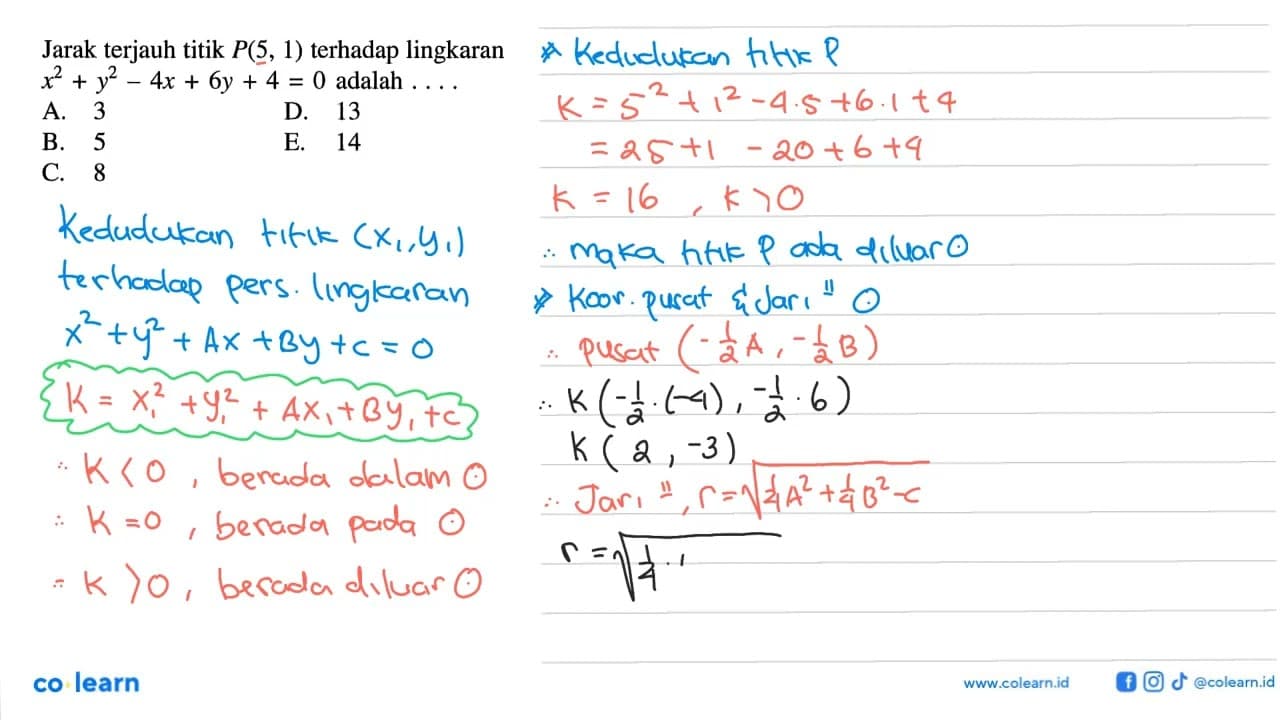 Jarak terjauh titik P(5, 1) terhadap lingkaran
x² + y² – 4x + 6y + 4 = 0 adalah . . . .
A. 3 D. 13
B. 5 E. 14
C. 8
Kedudukan titik (x₁, y₁)
terhadap pers. lingkaran
x² + y² + Ax + By + c = 0
K = x₁² + y₁² + Ax₁ + By₁ + c
∴ K < 0 , berada dalam ⊙
∴ K = 0 , berada pada ⊙
= K > 0 , berada diluar ⊙
Kedudukan titik P
K = 5² + 1² - 4.5 + 6.1 + 4
= 25 + 1 - 20 + 6 + 4
K = 16 , K > 0
∴ maka titik P ada diluar ⊙
Koor. pusat & Jari " ⊙
∴ pusat (-½ A, -½ B)
∴ K (-½ . (-4), -½ . 6)
K ( 2 , -3 )
∴ Jari ", r = √¼ A² + ¼ B² - c
r = √¼ .
co learn
www.colearn.id
@colearn.id